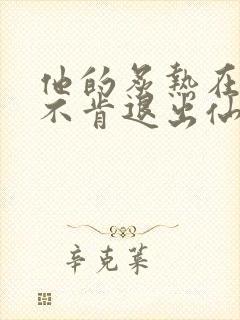 他的炙热在
不肯退出仙
辛克莱